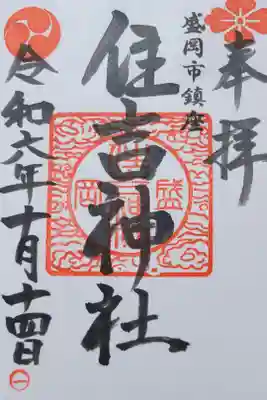 奉拝
盛岡市鎮座
住吉神社
令和六年十月十四日
盛
岡
一